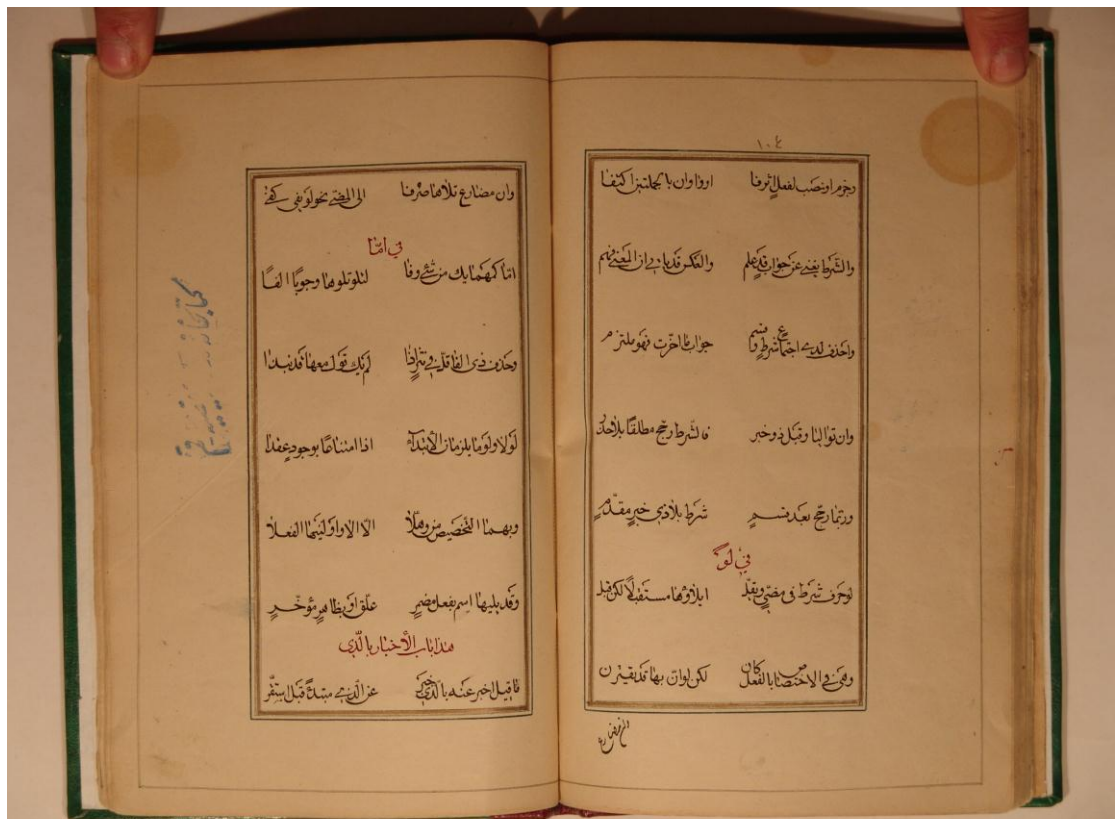 ١٠٤
وجزم او نصب لفعل اثرفا اوفا وان بالجملتين اكتنفا
والشرط يغني عن جواب قد علم والعكس قد ياتي ان المعنى فهم
واحذف لدى اجتماع شرط وقسم جواب ما اخرت فهو ملتزم
وان تواليا وقبل ذو خبر فالشرط رجح مطلقا بلا حذر
وربما رجح بعد قسم شرط بلا ذي خبر مقدم
في لو
لو حرف شرط في مضي ويقل ايلاؤها مستقبلا لكن قبل
وهي في الاختصاص بالفعل كان لكن لو ان بها قد يقترن
وان مضارع
وان مضارع تلاها صرفا الى المضي نحو لو يفي كفى
في امّا
امّا كمهما يك من شئ وفا لتلو تلوها وجوبا الفا
وحذف ذي الفا قل في نثر اذا لم يك قول معها قد نبذا
لولا ولوما يلزمان الأبتداء اذا امتناعا بوجود عقدا
وبهما التحضيض مز وهلّا الّا الا واولينها الفعلا
وقد يليها اسم بفعل مضمر علق او بظاهر مؤخر
هذا باب الأخبار بالّذي
ما قيل اخبر عنه بالذي خبر عن الّذي مبتدء قبل استقر